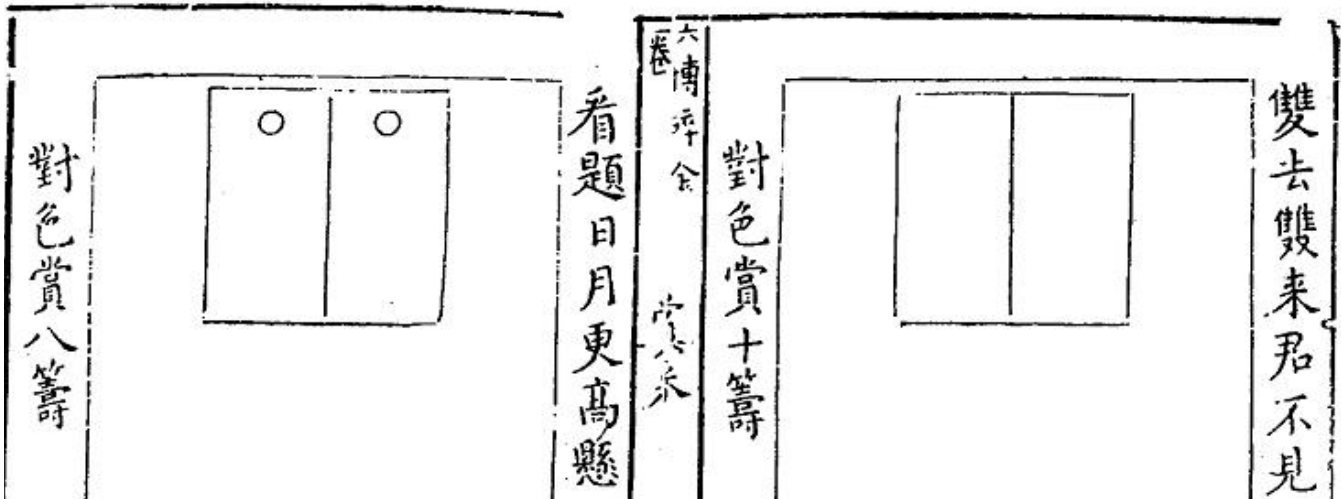 雙去雙来君不見
對色賞十籌
六博碎金
卷
看題日月更高懸
對色賞八籌